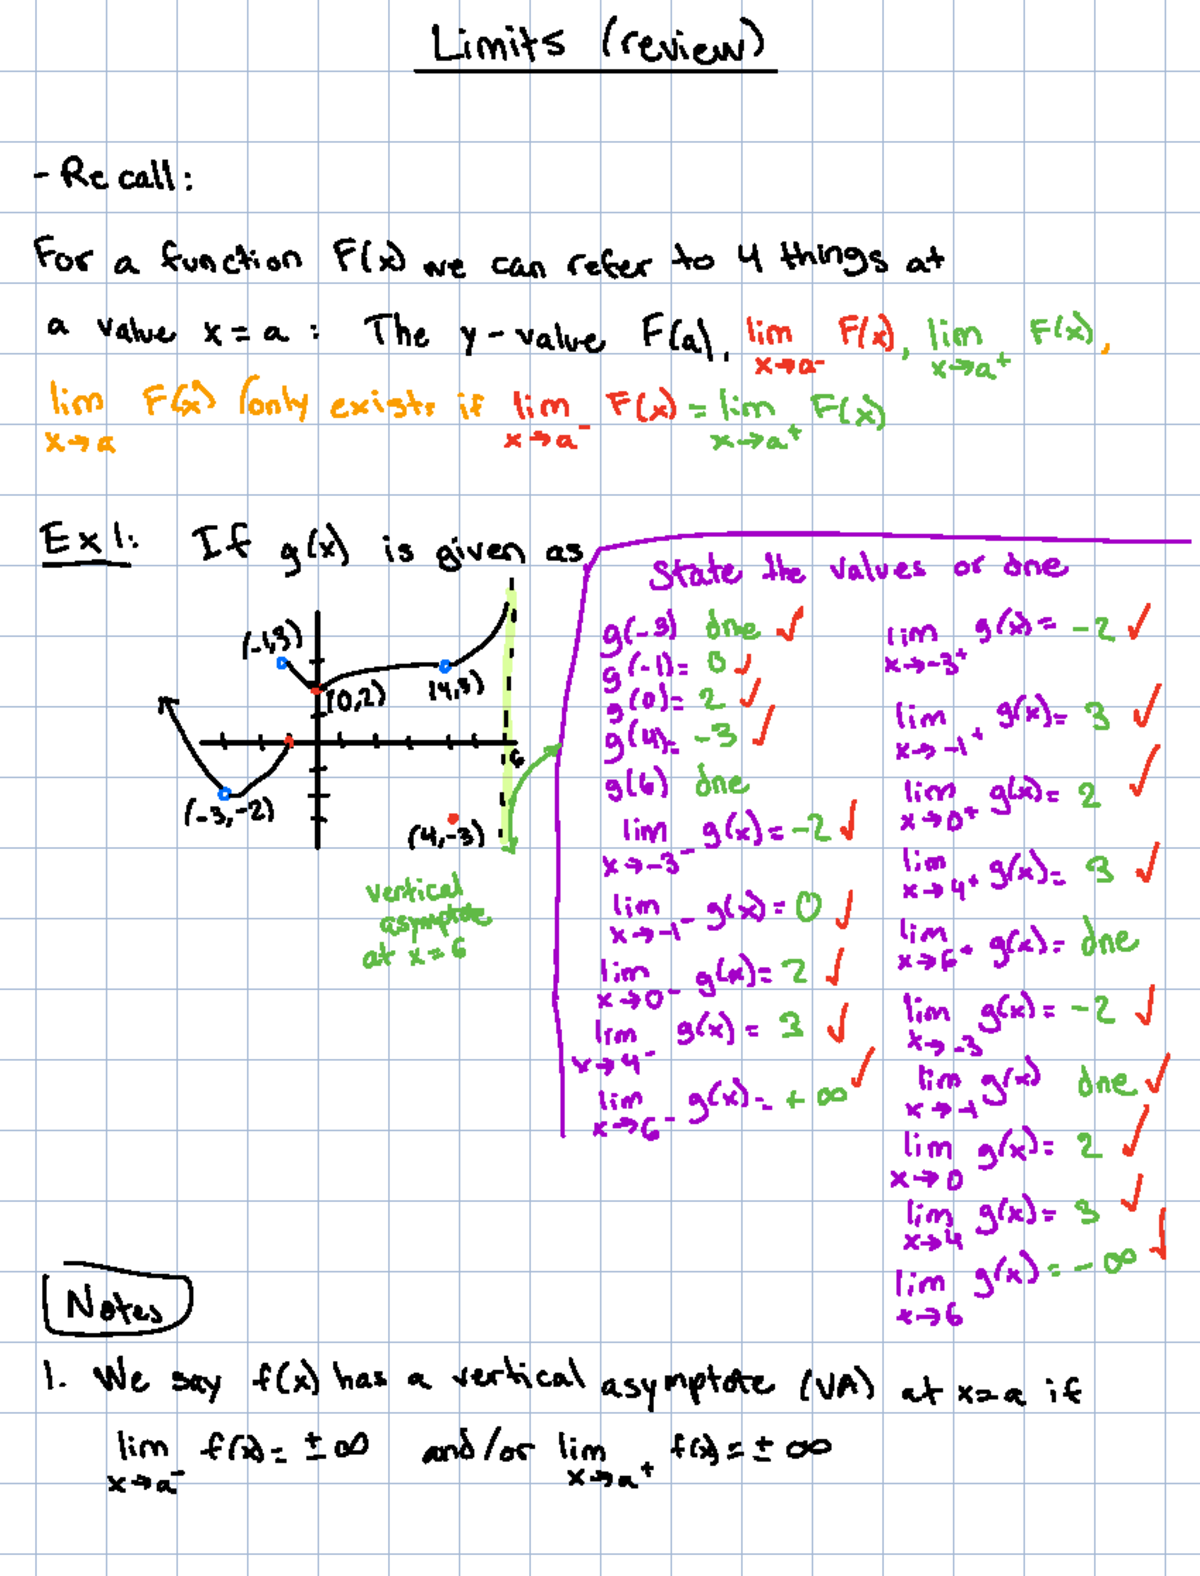 Limits (review)
- Recall:
For a function F(x) we can refer to 4 things at
a value x = a : The y-value F(a), lim x→a⁻ F(x), lim x→a⁺ F(x),
lim x→a F(x) (only exists if lim x→a⁻ F(x) = lim x→a⁺ F(x)
Ex 1: If g(x) is given as
(-1,3)
(0,2)
(4,3)
6
(-3,-2)
(4,-3)
vertical
asymptote
at x = 6
State the values or dne
g(-3) dne ✓
g(-1)= 0 ✓
g(0)= 2 ✓
g(4)= -3 ✓
g(6) dne
lim x→-3⁻ g(x) = -2 ✓
lim x→-1⁻ g(x) = 0 ✓
lim x→0⁻ g(x) = 2 ✓
lim x→4⁻ g(x) = 3 ✓
lim x→6⁻ g(x) = +∞ ✓
lim x→-3⁺ g(x) = -2 ✓
lim x→-1⁺ g(x) = 3 ✓
lim x→0⁺ g(x) = 2 ✓
lim x→4⁺ g(x) = 3 ✓
lim x→6⁺ g(x) = dne
lim x→-3 g(x) = -2 ✓
lim x→-1 g(x) dne ✓
lim x→0 g(x) = 2 ✓
lim x→4 g(x) = 3 ✓
lim x→6 g(x) = -∞ ✓
Notes
1. We say f(x) has a vertical asymptote (VA) at x=a if
lim x→a⁻ f(x) = ±∞ and/or lim x→a⁺ f(x) = ±∞